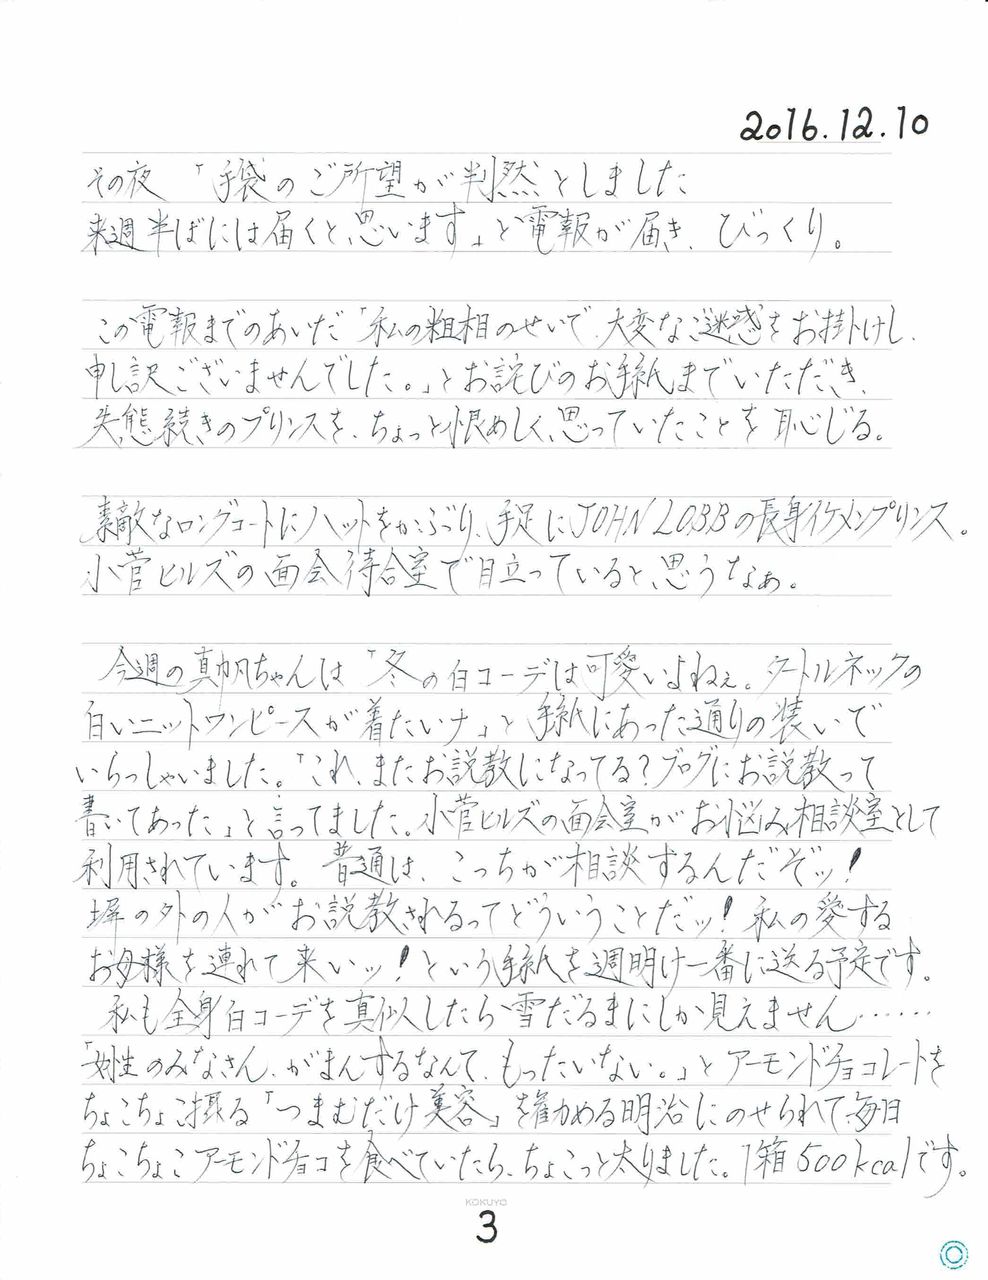 2016.12.10
その夜 「手袋のご所望が判然としました
来週半ばには届くと思います」と電報が届き、びっくり。
この電報までのあいだ「私の粗相のせいで、大変なご迷惑をお掛けし、
申し訳ございませんでした。」とお詫びのお手紙までいただき、
失態続きのプリンスを、ちょっと恨めしく思っていたことを恥じる。
素敵なロングコートにハットをかぶり、手足にJOHN LOBBの長身イケメンプリンス。
小菅ヒルズの面会待合室で目立っていると思うなぁ。
今週の真帆ちゃんは「冬の白コーデは可愛いよねぇ。タートルネックの
白いニットワンピースが着たいナ」と手紙にあった通りの装いで
いらっしゃいました。「これ、またお説教になってる?ブログにお説教って
書いてあった」と言ってました。小菅ヒルズの面会室がお悩み相談室として
利用されています。普通は、こっちが相談するんだぞッ!
塀の外の人がお説教されるってどういうことだッ!私の愛する
お母様を連れて来いッ!という手紙を週明け一番に送る予定です。
私も全身白コーデを真似したら雪だるまにしか見えません……
「女性のみなさん、がまんするなんて、もったいない。」とアーモンドチョコレートを
ちょこちょこ摂る「つまむだけ美容」を勧める明治にのせられて、毎日
ちょこちょこアーモンドチョコを食べていたら、ちょこっと太りました。1箱500kcalです。
KOKUYO
3